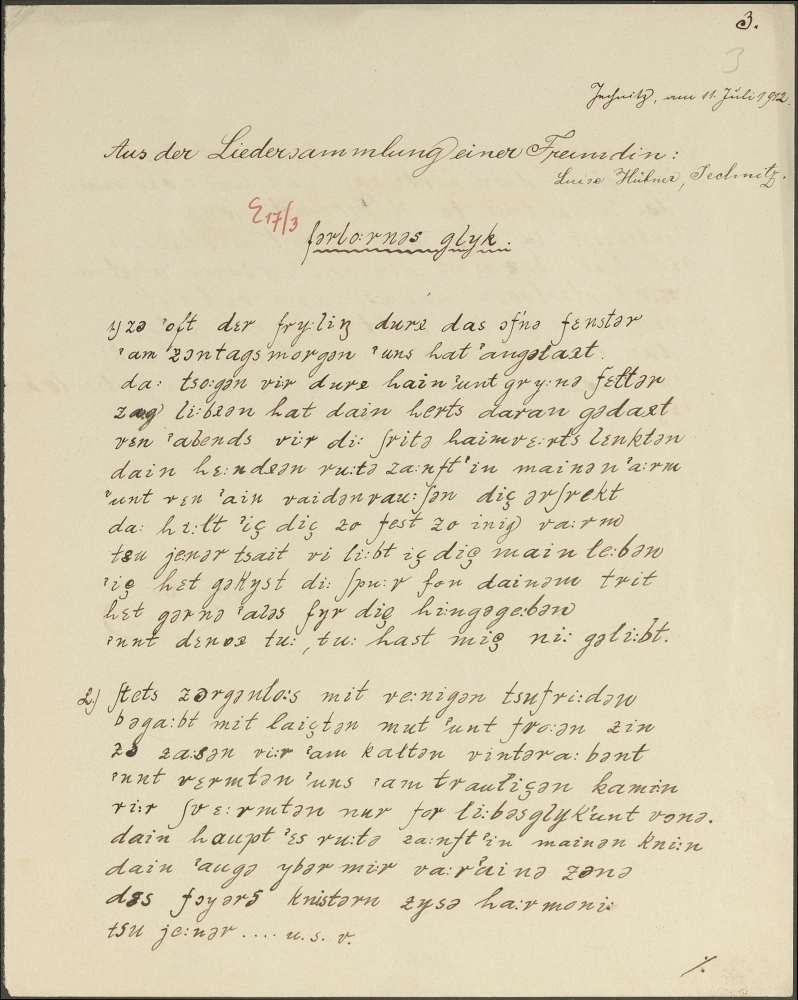 3.
3
Jechnitz, am 11. Juli 1912.
Aus der Liedersammlung einer Freundin:
Luise Hübner, Jechnitz.
E17/3
fərlo:rnəs glyk.
1) zə 'oft dɛr fry:liŋ durx das ɔfnə fɛnstər
'am zɔntagsmorgən 'uns hat 'angəlaxt.
da: tso:gən vir durx hain 'unt gry:nə fɛltər
li:bxən hat dain herts daran gədaxt
vɛn 'abends vi:r di: ʃritə haimvɛ:rts lɛnktən
dain hɛ:ndxən ru:tə za:nft 'in mainən 'a:rm
'unt vɛn 'ain vaidənrau:ʃən diç ərʃrekt
da: hi:lt 'iç diç zo fest zo iniç va:rm
tsu jenər tsait vi li:bt iç diç main le:bən
'iç hɛt gəkyst di: ʃpu:r fon dainəm trit
hɛt gərnə 'aləs fyr diç hi:ngəge:bən
'unt dɛnox tu:, tu: hast miç ni: gəli:bt.
2) ʃtets zɔrgənlo:s mit ve:nigən tsufri:dən
bəga:bt mit laiçtən mut 'unt fro:ən zin
zo za:sən vi:r 'am kaltən vintəra:bənt
'unt vɛrmtən 'uns 'am trauliçən kamin
vi:r ʃvɛ:rmtən nur for li:bəsglyk 'unt vonə.
dain haupt 'ɛs ru:tə za:nft 'in mainən kni:n
dain 'augə ybər mir va:r 'ainə zɔnə
dəs fɔyərs knistərn zysə ha:rmoni:
tsu je:nər .... u. s. v.
./.